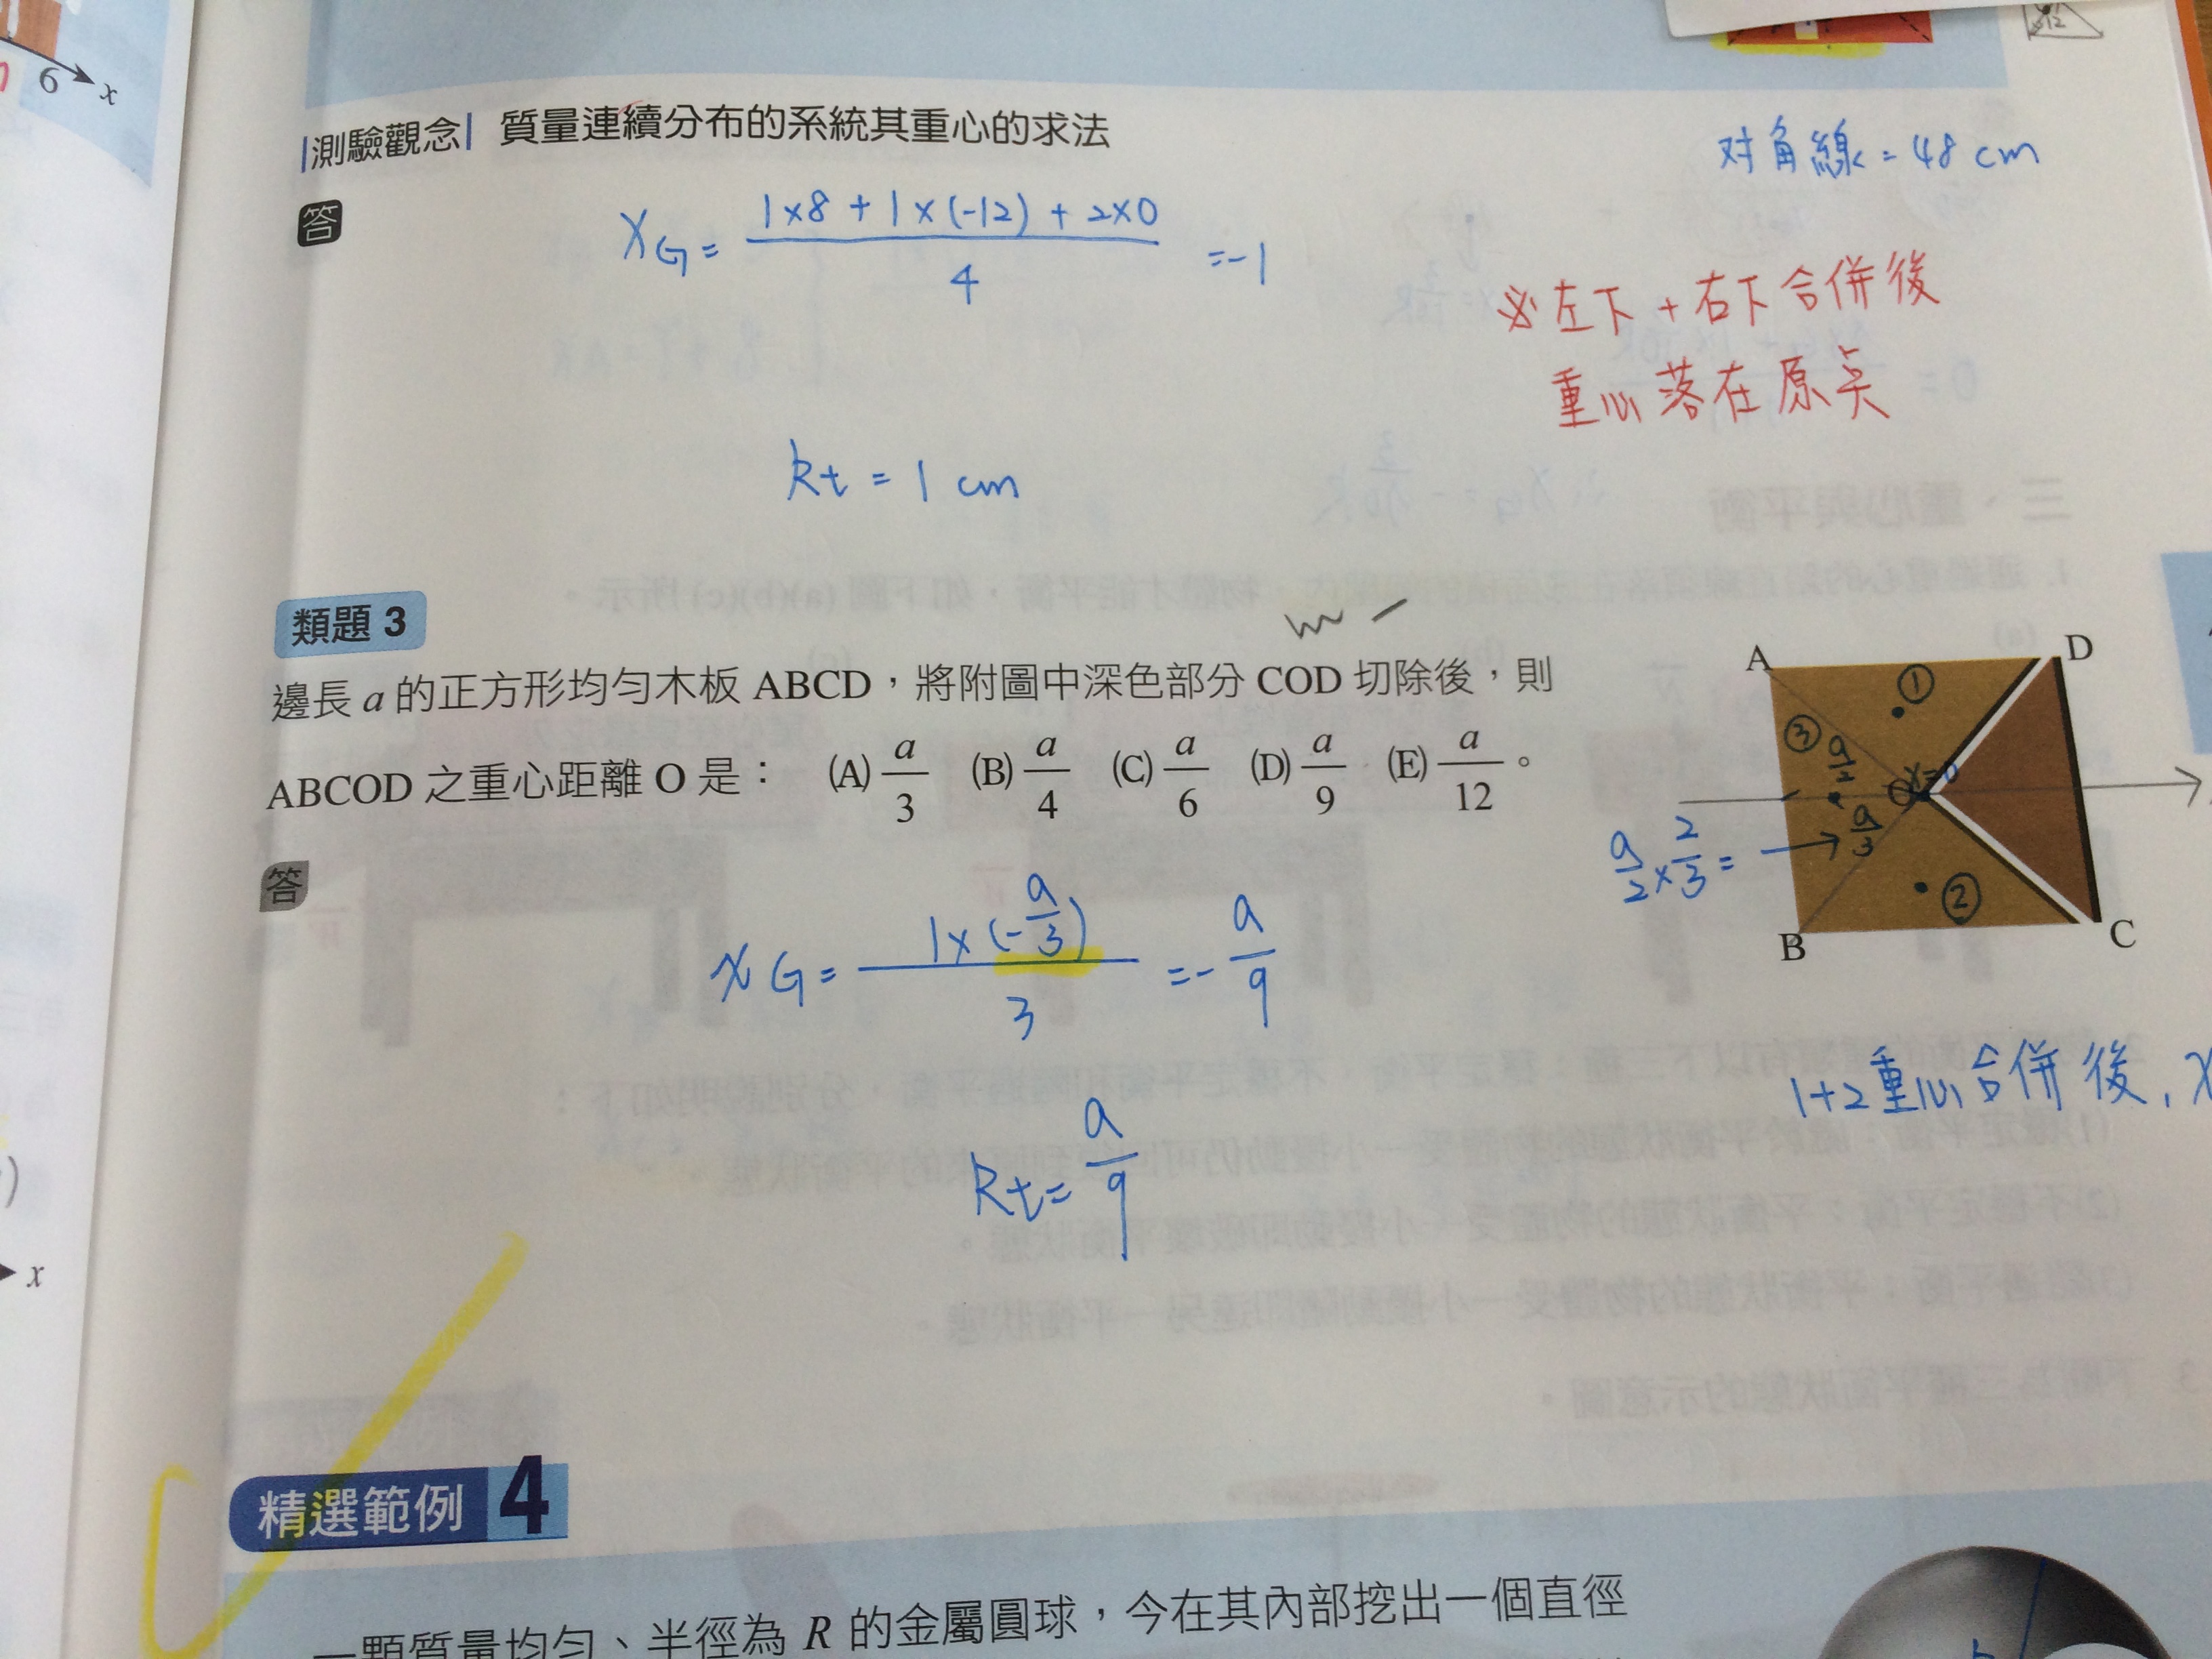 6 x
測驗觀念 質量連續分布的系統其重心的求法
对角線 = 48 cm
答
X_G = \frac{1×8 + 1×(-12) + 2×0}{4} = -1
※左下 + 右下合併後
重心落在原点
Rt = 1 cm
類題 3
邊長 a 的正方形均勻木板 ABCD,將附圖中深色部分 COD 切除後,則
ABCOD 之重心距離 O 是: (A) \frac{a}{3} (B) \frac{a}{4} (C) \frac{a}{6} (D) \frac{a}{9} (E) \frac{a}{12}。
A D
①
③ \frac{a}{2}
O x=0
\frac{a}{2} × \frac{2}{3} = → \frac{a}{3}
②
B C
答
x_G = \frac{1×(-\frac{a}{3})}{3} = -\frac{a}{9}
1+2重心合併後, x
Rt = \frac{a}{9}
x
精選範例 4
一顆質量均勻、半徑為 R 的金屬圓球,今在其內部挖出一個直徑